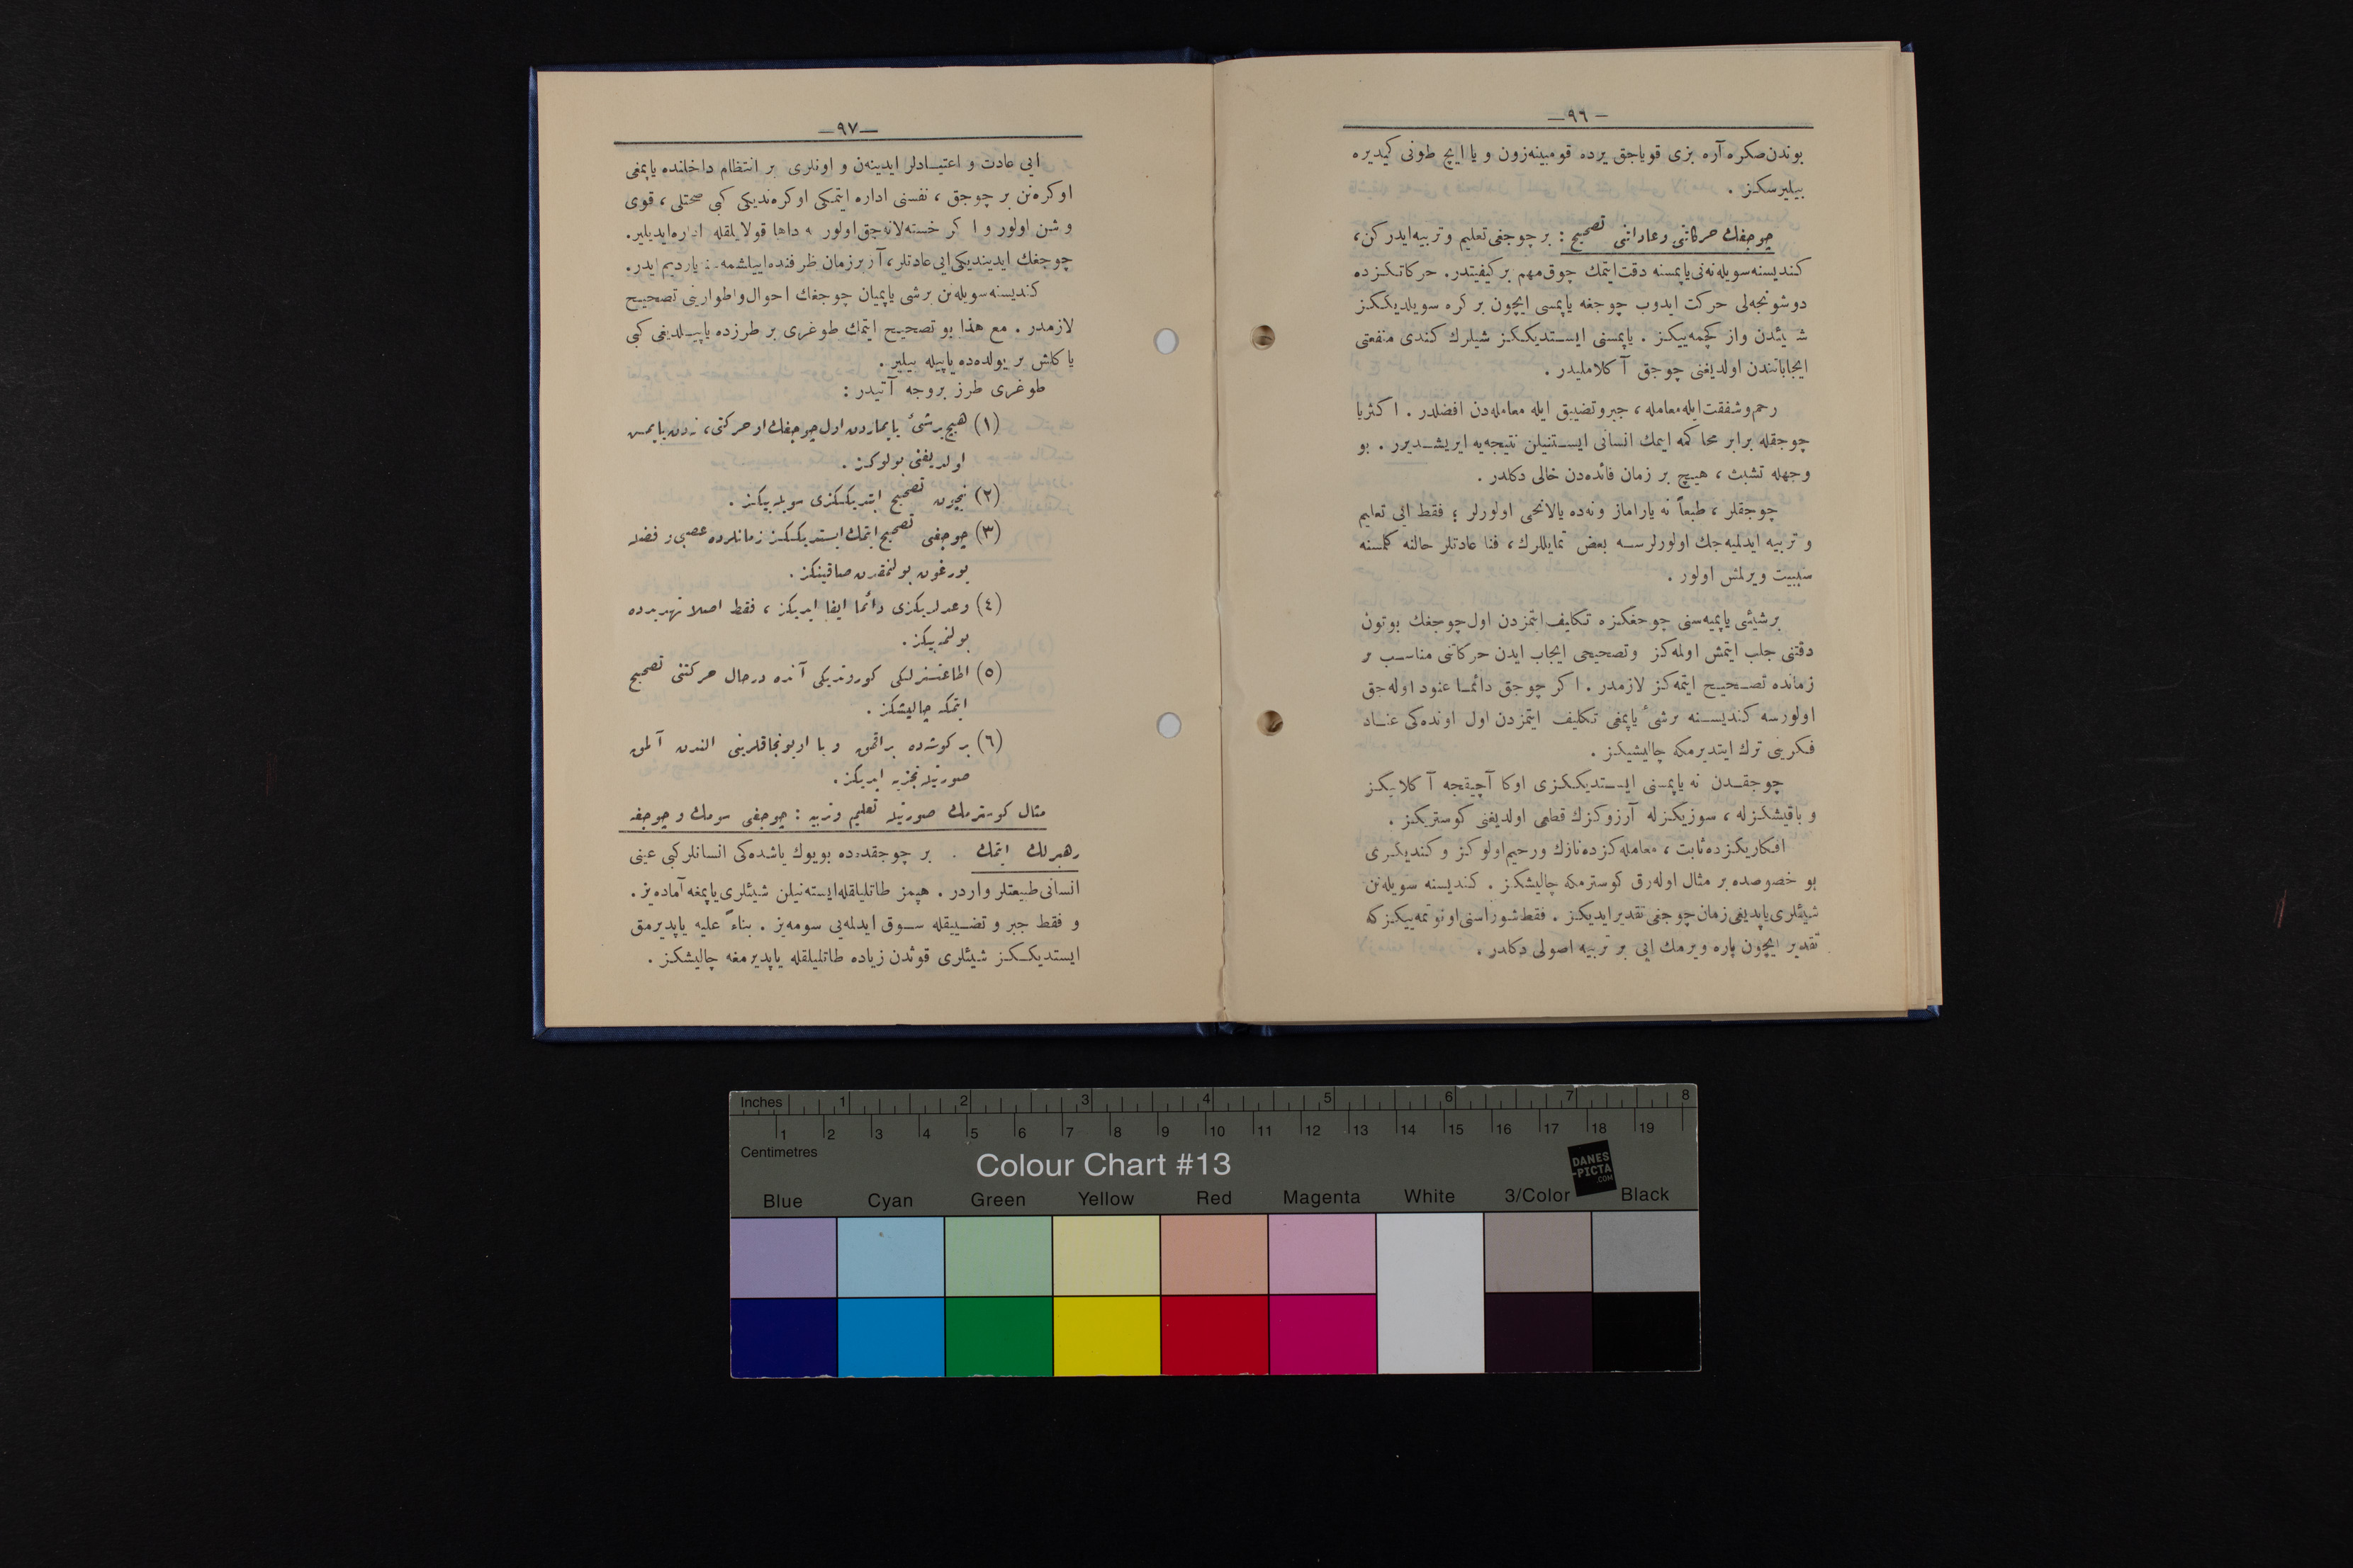 — ٩٦ —
بوندن صکره آره بزی قویاجق یرده قومبینه‌زون و یا ایچ طونی کیدیره
بیلیرسکز .
چوجغك حرکاتنی وعاداتنی تصحیح : بر چوجغی تعلیم و تربیه ایدرکن،
کندیسنه سویله‌نه‌نی یاپمسنه دقت ایتمك چوق مهم بر کیفیتدر. حرکاتکزده
دوشونجه‌لی حرکت ایدوب چوجغه یاپمسی ایچون بر کره سویلدیککز
شیئدن واز کچمه‌ییکز . یاپمسنی ایستدیککز شیلرك کندی منفعتی
ایجاباتندن اولدیغنی چوجق آکلاملیدر .
رحم و شفقت ایله معامله ، جبر و تضییق ایله معامله‌دن افضلدر . اکثریا
چوجقله برابر محاکمه ایمك انسانی ایستنیلن نتیجه‌یه ایریشدیرر . بو
وجهله تشبث ، هیچ بر زمان فائده‌دن خالی دکلدر .
چوجقلر ، طبعاً نه یاراماز ونه‌ده یالانجی اولورلر ؛ فقط ایی تعلیم
و تربیه ایدلمیه‌جك اولورلرسه بعض تمایللرك ، فنا عادتلر حالنه کلمسنه
سببیت ویرلمش اولور .
برشیئی یاپمیه‌سنی چوجغکزه تکلیف ایتمزدن اول چوجغك بوتون
دقتنی جلب ایتمش اولمه‌کز وتصحیحی ایجاب ایدن حرکاتنی مناسب بر
زمانده تصحیح ایتمه‌کز لازمدر . اکر چوجق دائما عنود اوله‌جق
اولورسه کندیسنه برشیٔ یاپمغی تکلیف ایتمزدن اول اونده‌کی عناد
فکرینی ترك ایتدیرمکه چالیشیکز .
چوجقدن نه یاپمسنی ایستدیککزی اوکا آچیقجه آکلایکز
و باقیشکزله ، سوزیکزله آرزوکزك قطعی اولدیغنی کوستریکز .
افکاریکزده ثابت ، معامله‌کزده نازك ورحیم اولوکز و کندیکزی
بو خصوصده بر مثال اوله‌رق کوسترمکه چالیشکز . کندیسنه سویله‌نن
شیئلری یاپدیغی زمان چوجغی تقدیر ایدیکز . فقط شوراسنی اونوتمه‌ییکزکه
تقدیر ایچون پاره ویرمك ایی بر تربیه اصولی دکلدر .
— ٩٧ —
ایی عادت و اعتیادلر ایدینه‌ن و اونلری بر انتظام داخلنده یاپمغی
اوکره‌نن بر چوجق ، نفسنی اداره ایتمکی اوکره‌ندیکی کبی صحتلی ، قوی
و شن اولور و اکر خسته‌لانه‌جق اولورسه داها قولایلقله اداره ایدیلیر.
چوجغك ایدیندیکی ایی عادتلر ، آز بر زمان ظرفنده اییلشمه‌سنه یاردیم ایدر.
کندیسنه سویله‌نن برشی یاپمیان چوجغك احوال واطوارینی تصحیح
لازمدر . مع هذا بو تصحیح ایتمك طوغری بر طرزده یاپیلدیغی کبی
یاکلش بر یولده‌ده یاپیله بیلیر .
طوغری طرز بروجه آتیدر :
(١) هیچ برشیٔ یاپمازدن اول چوجغك او حرکتی، نه‌دن یاپمس
اولدیغنی بولوکز .
(٢) نیچون تصحیح ایتدیککزی سویله‌ییکز .
(٣) چوجغی تصحیح ایتمك ایستدیککز زمانلرده عصبی و فضله
یورغون بولنمقدن صاقینکز .
(٤) وعدلریکزی دائما ایفا ایدیکز ، فقط اصلا تهدیدده
بولنمه‌ییکز .
(٥) اطاعتسزلکی کوروندیکی آنده درحال حرکتنی تصحیح
ایتمکه چالیشکز .
(٦) بر کوشه‌ده براقمق و یا اویونجاقلرینی الندن آلمق
صورتیله تجزیه ایدیکز .
مثال کوسترمك صورتیله تعلیم وتربیه : چوجغی سومك و چوجغه
رهبرلك ایتمك . بر چوجقده‌ده بویوك یاشده‌کی انسانلرکبی عینی
انسانی طبیعتلر واردر . هپمز طاتلیلقله ایسته‌نیلن شیئلری یاپمغه آماده‌یز .
و فقط جبر و تضییقله سوق ایدلمه‌یی سومه‌یز . بناءً علیه یاپدیرمق
ایستدیککز شیئلری قوتدن زیاده طاتلیلقله یاپدیرمغه چالیشکز .
Inches 1 2 3 4 5 6 7 8
1 2 3 4 5 6 7 8 9 10 11 12 13 14 15 16 17 18 19
Centimetres
Colour Chart #13
DANES
-PICTA
.COM
Blue Cyan Green Yellow Red Magenta White 3/Color Black